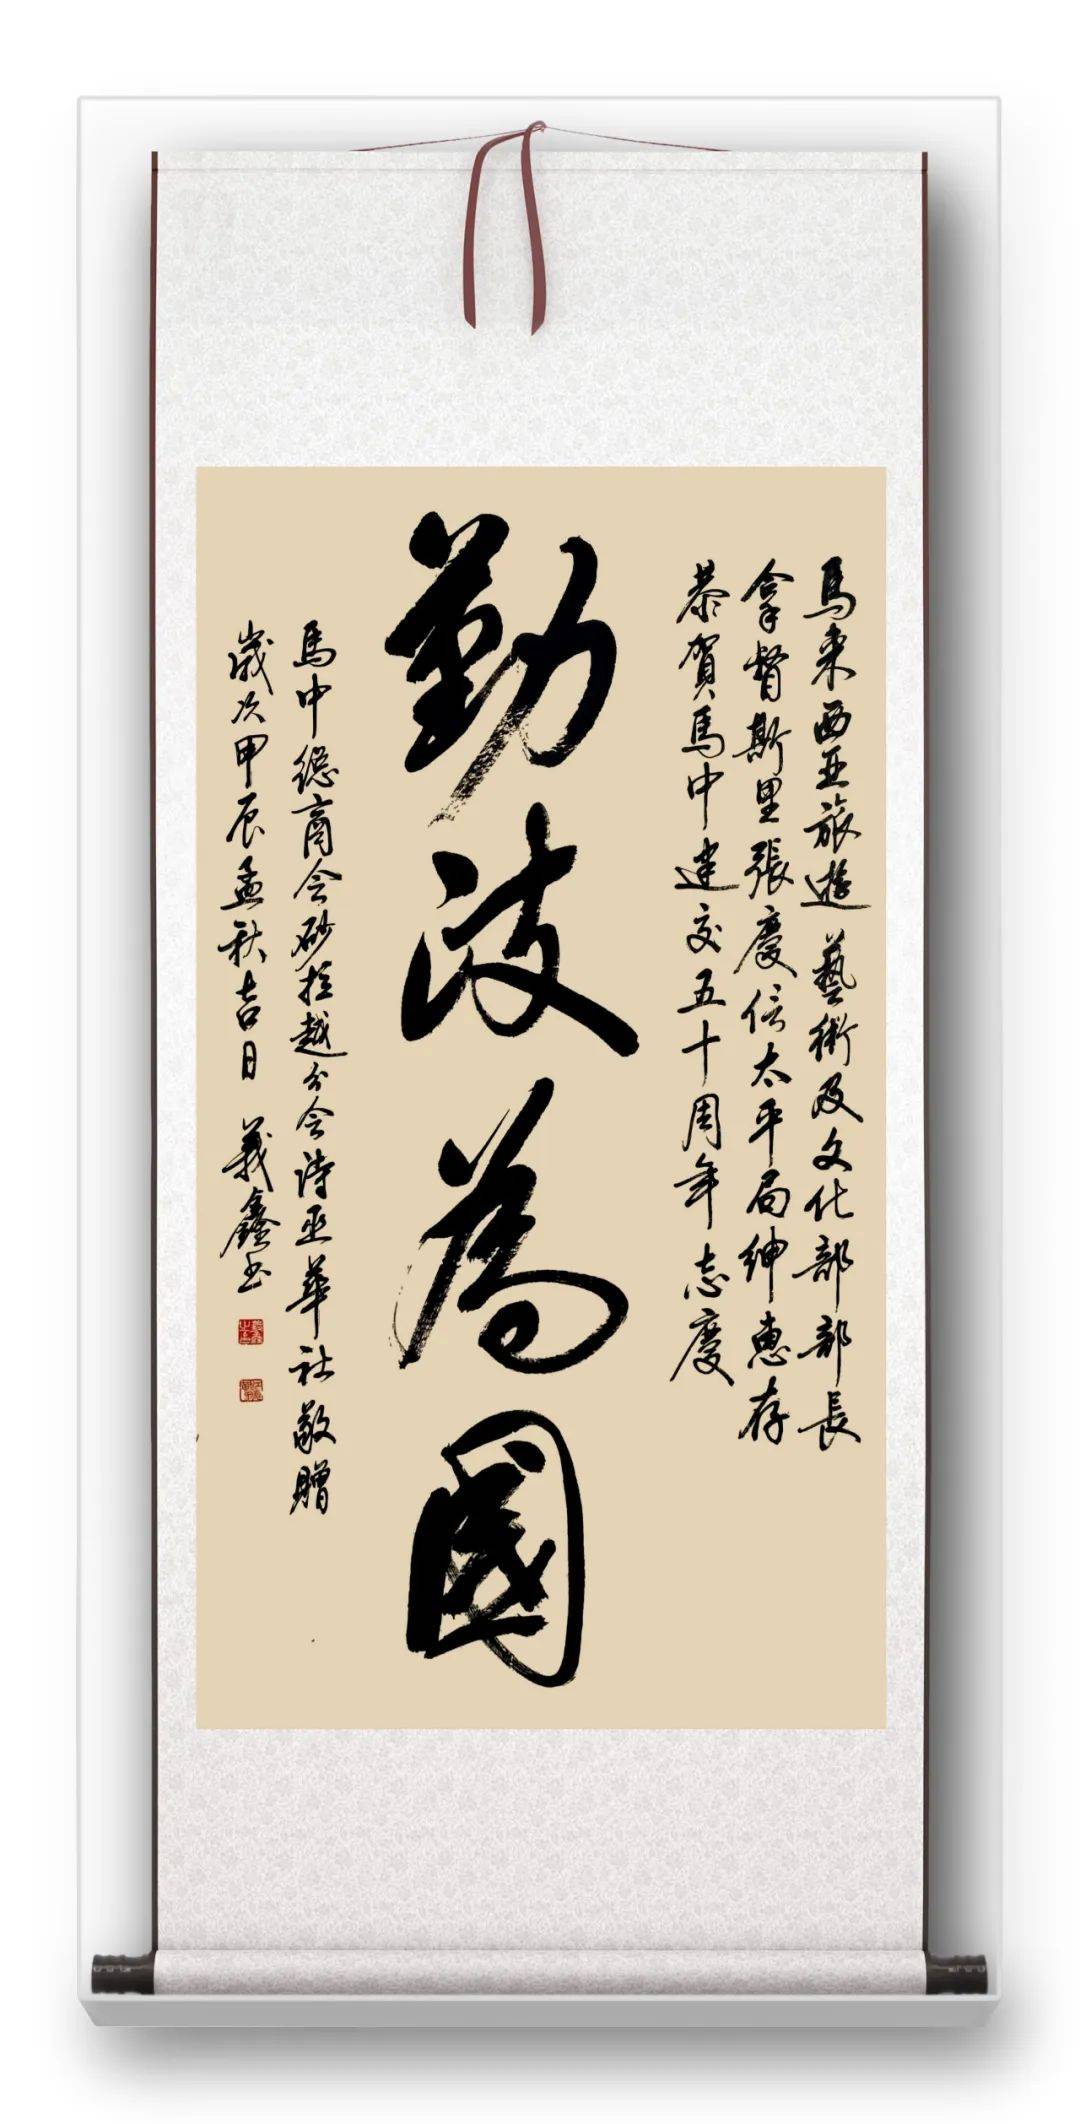 馬来西亚旅遊 藝術及文化部部長
拿督斯里張慶信太平局紳惠存
恭賀馬中建交五十周年志慶
勤政為國
馬中總商会砂拉越分会詩巫華社敬贈
歲次甲辰孟秋吉日 義鑫书